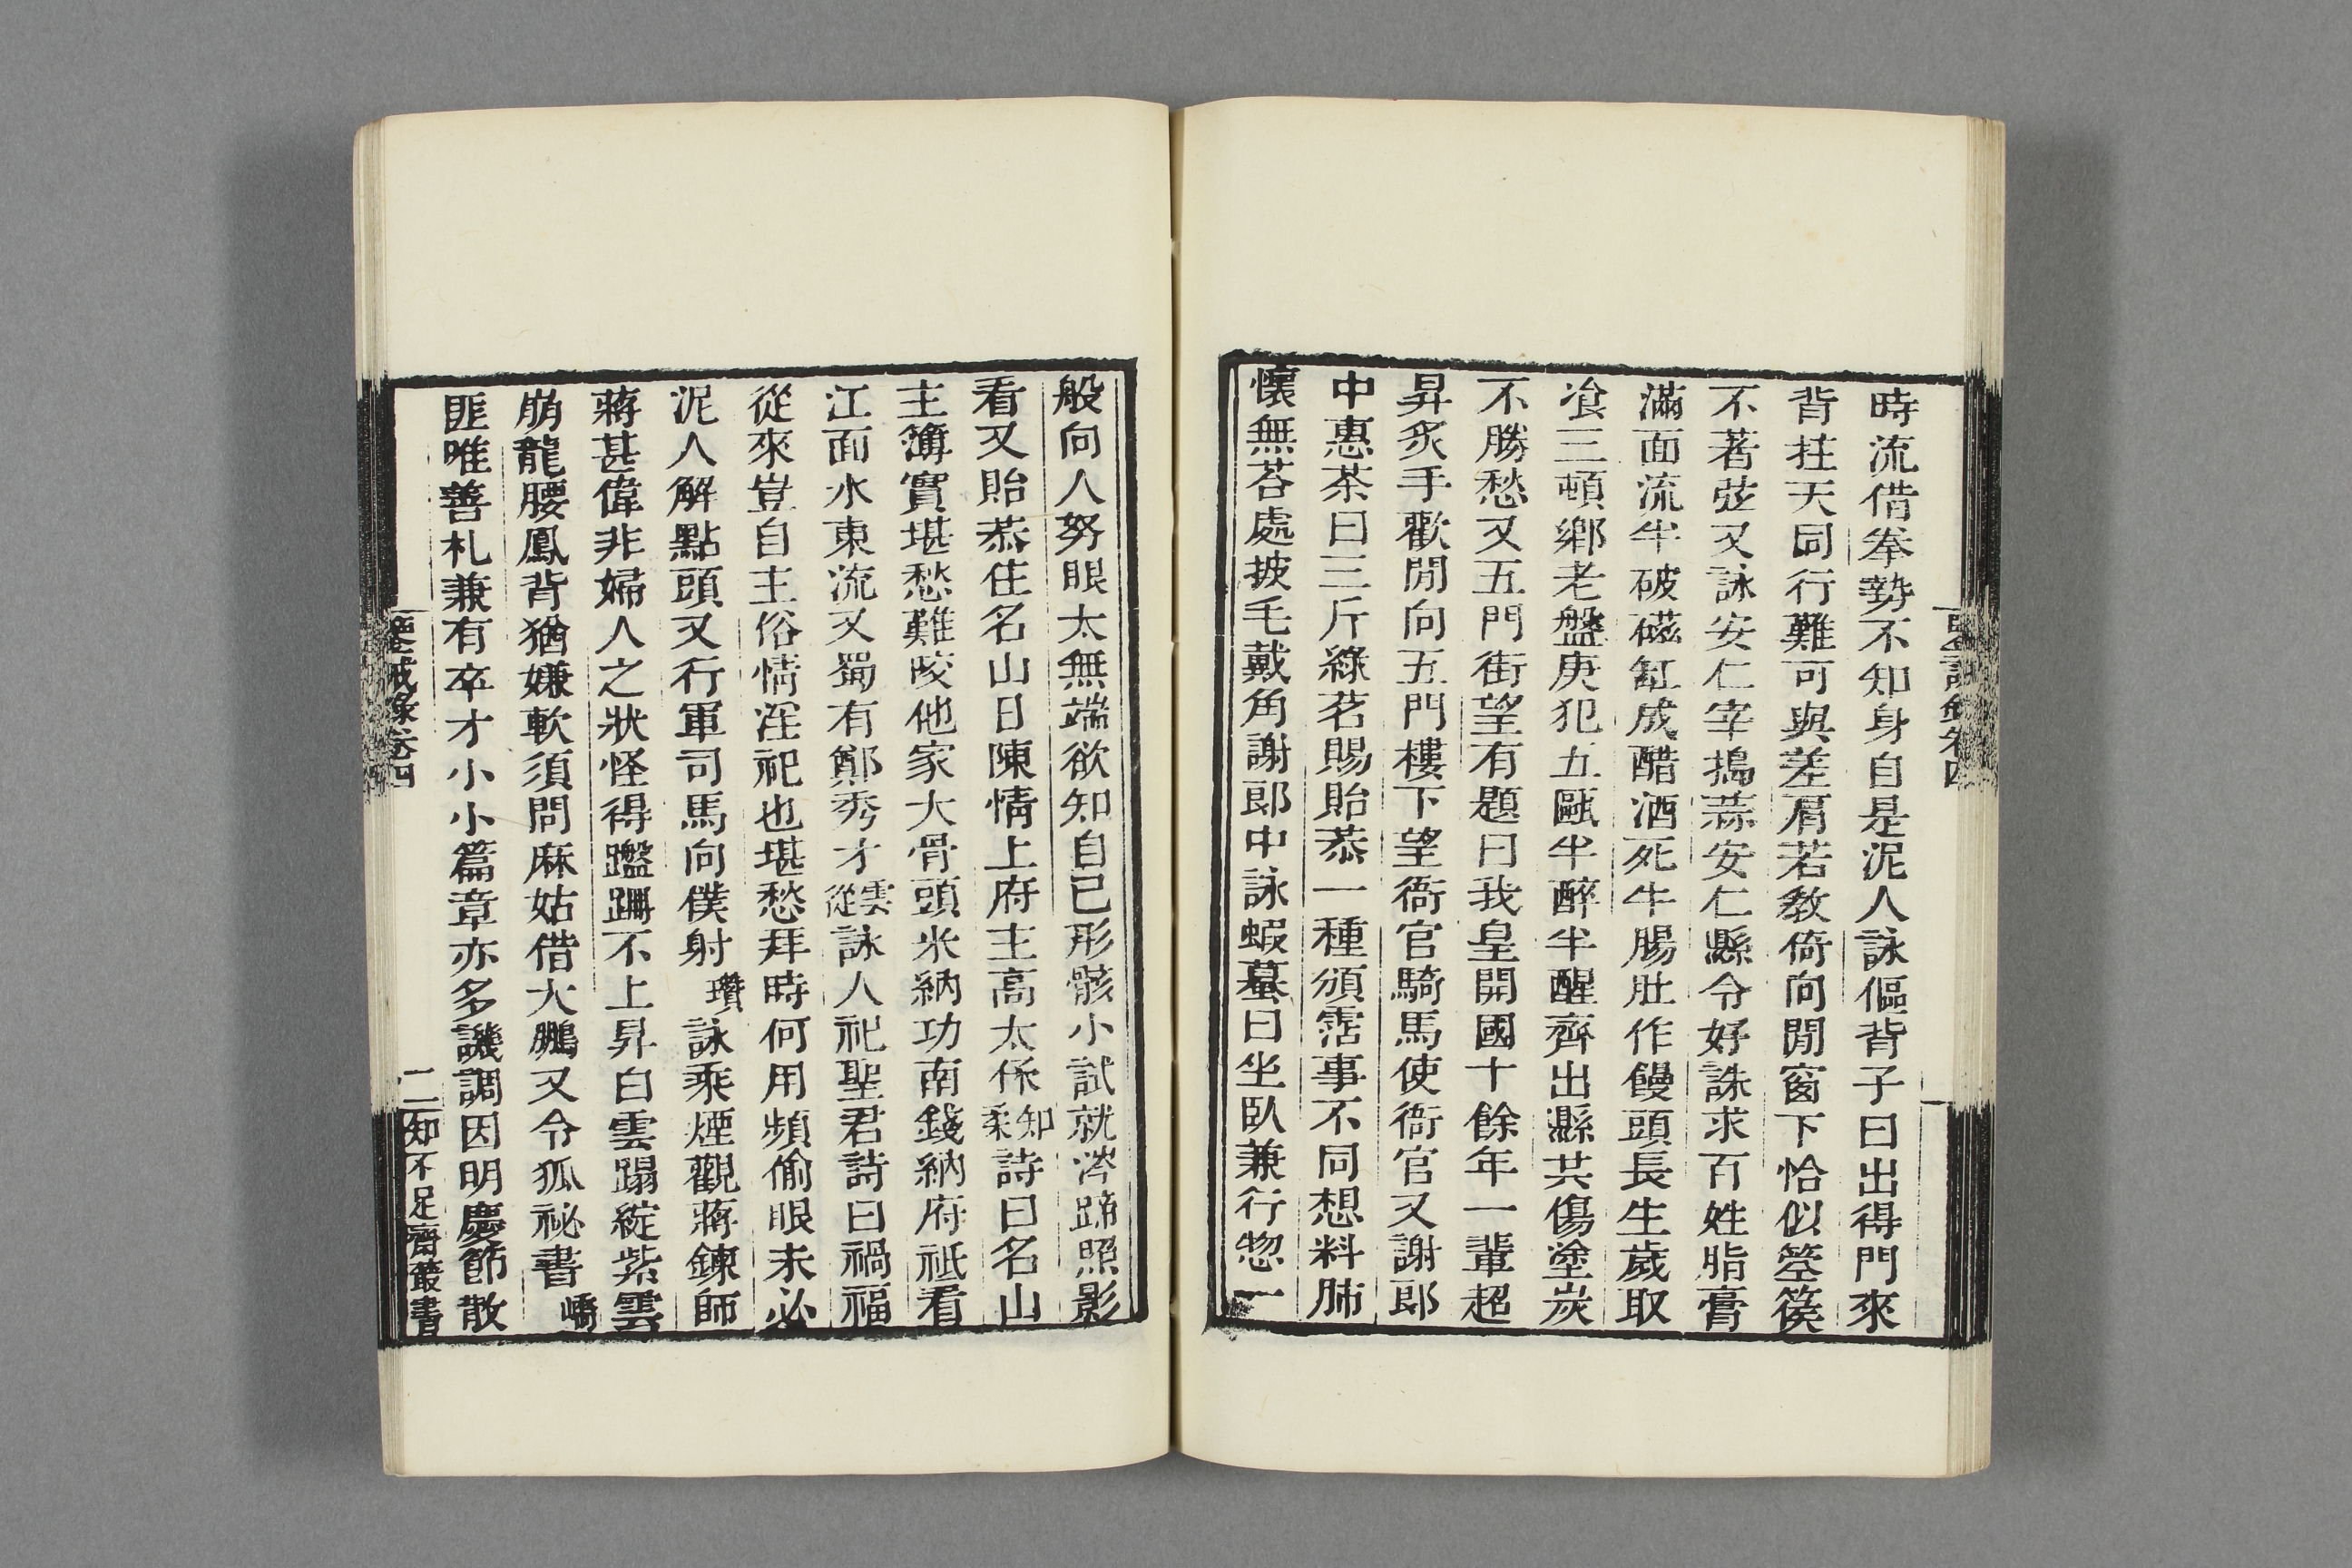 時流借拳勢不知身自是泥人詠傴背子曰出得門來
背拄天同行難可與差肩若教倚向閒窗下恰似箜篌
不著弦又詠安仁宰擣蒜安仁縣令好誅求百姓脂膏
滿面流半破磁缸成醋酒死牛腸肚作饅頭長生歲取
飡三頓鄉老盤庚犯五甌半醉半醒齊出縣共傷塗炭
不勝愁又五門街望有題曰我皇開國十餘年一輩超
昇炙手歡閒向五門樓下望衙官騎馬使衙官又謝郎
中惠茶曰三斤綠茗賜貽恭一種頒霑事不同想料肺
懷無荅處披毛戴角謝郎中詠蝦蟇曰坐臥兼行惣一
般向人努眼太無端欲知自己形骸小試就涔蹄照影
看又貽恭住名山日陳情上府主高太保知柔詩曰名山
主簿實堪愁難咬他家大骨頭米納功南錢納府祗看
江面水東流又蜀有鄭秀才雲從詠人祀聖君詩曰禍福
從來豈自主俗情淫祀也堪愁拜時何用頻偷眼未必
泥人解點頭又行軍司馬向僕射瓚詠乘煙觀蔣鍊師
蔣甚偉非婦人之狀怪得蹣跚不上昇白雲蹋綻紫雲
崩龍腰鳳背猶嫌軟須問麻姑借大鵬又令狐祕書嶠
匪唯善札兼有卒才小小篇章亦多譏調因明慶節散
鑒誡錄卷四
二
知不足齋叢書